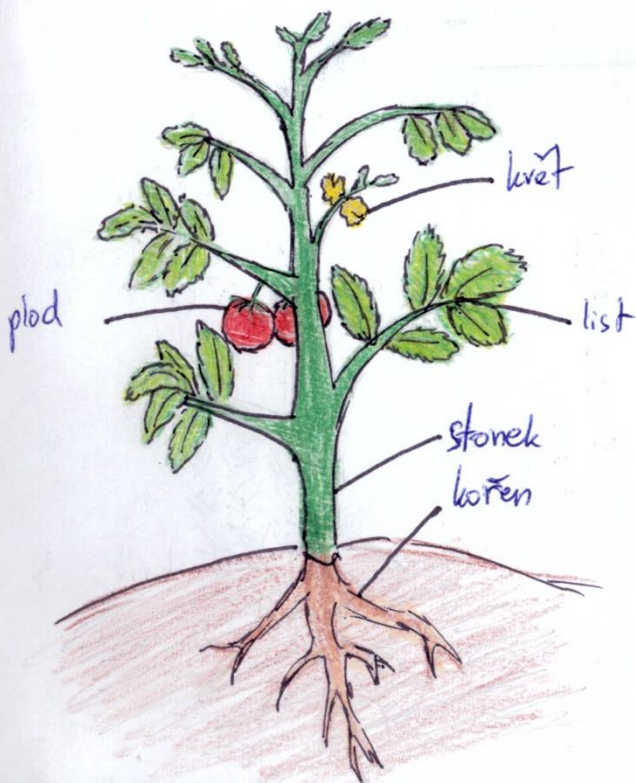 květ
plod
list
stonek
kořen